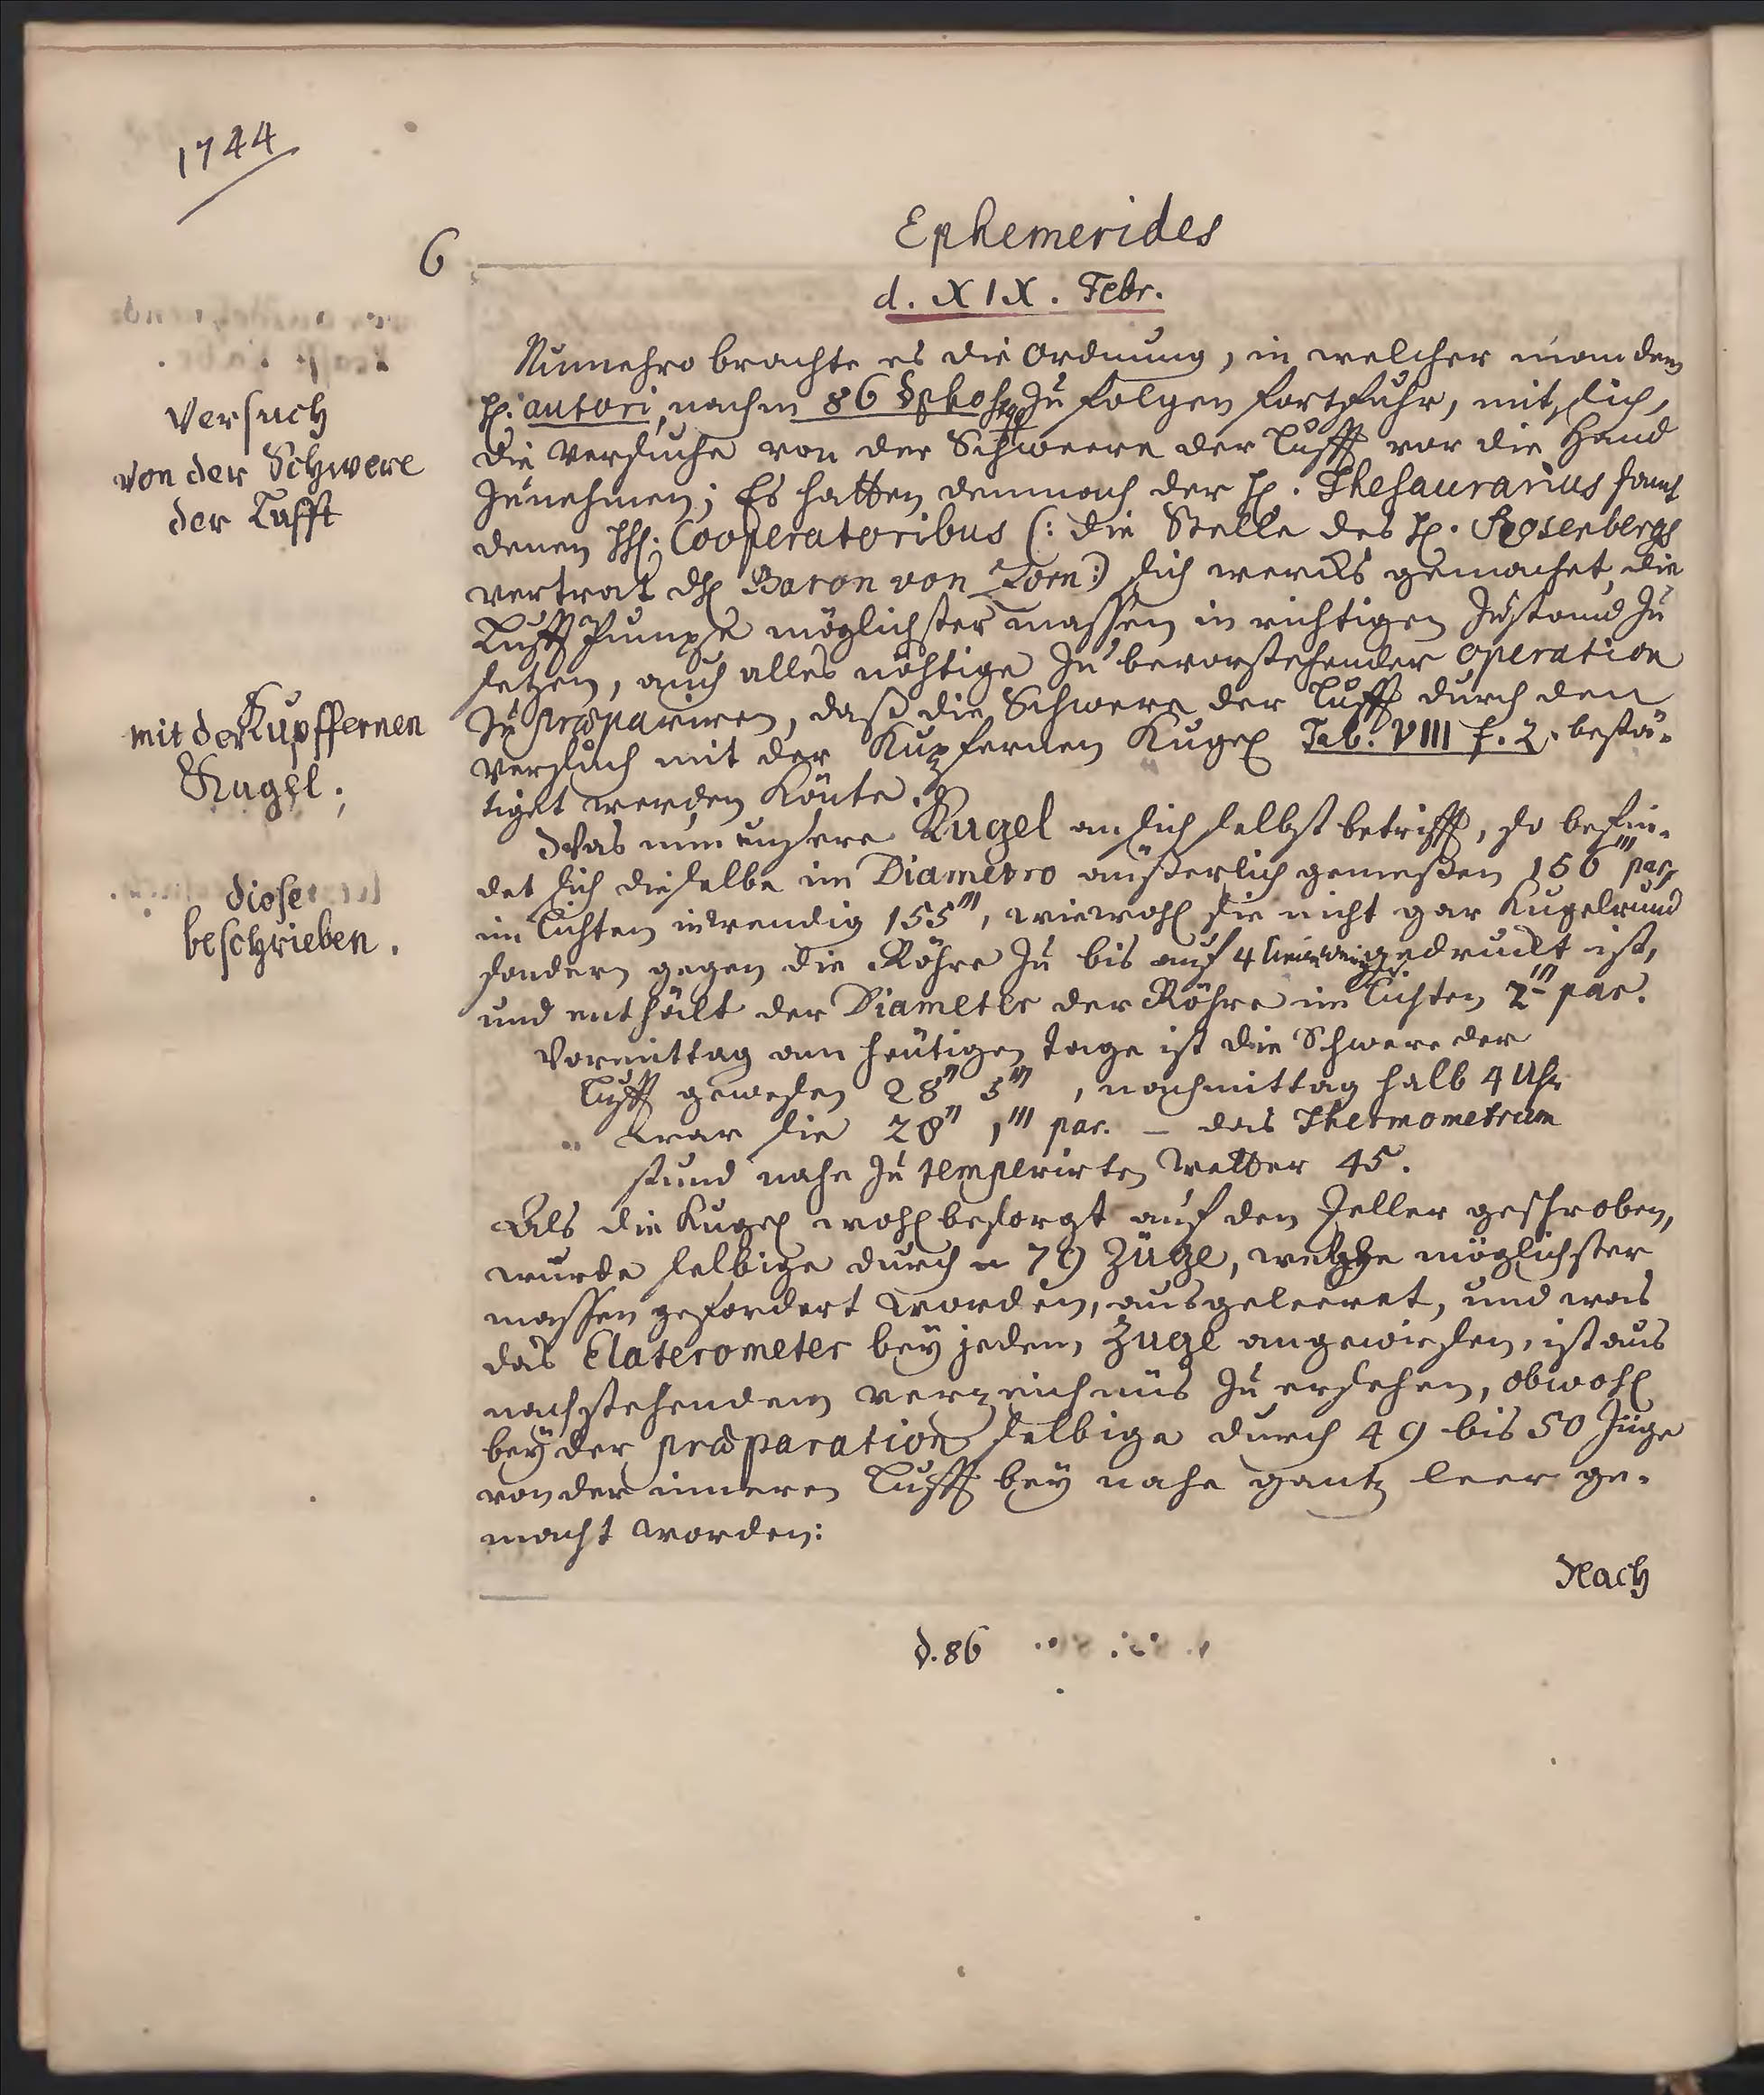 1744
6
Ephemerides
d. XIX. Febr.
Nunmehro brachte es die Ordnung, in welcher man dem
H. autori, nach 86 zu folgen fortfuhr, mit sich,
die Versuche von der Schweere der Lufft vor die Hand
zunehmen; Es hatten demnach der H. Thesaurarius samt
denen HH. Cooperatoribus (: die Stelle des H. Rosenbergs
vertrat dH Baron von Zorn:) sich wercks gemachet, die
Lufft Pumpe möglichster massen in richtigen Zustand zu
setzen, auch alles nöhtige zu bevorstehender operation
zu præpariren, daß die Schwere der Lufft durch den
Versuch mit der Kupfernen Kugel Tab. VIII f. 2. bestä-
tiget werden könte.
Was nun unsere Kugel an sich selbst betrifft, so befin-
det sich dieselbe im Diametro äußerlich gemeßen 156''' par,
im Lichten inwendig 155''', wiewohl sie nicht gar Kugelrund
sondern gegen die Röhre zu bis auf 4 Linien eingedruckt ist,
und enthält der Diameter der Röhre im Lichten 2''' par.
Vormittag am heutigen tage ist die Schwere der
Lufft gewesen 28'' 3''', nachmittag halb 4 Uhr
war sie 28'' 1''' par. – das Thermometrum
stund nahe zu temperirten Wetter 45.
Als die Kugel wohl besorgt auf den Teller geschroben,
wurde selbige durch 79 Züge, welche möglichster
massen gefordert worden, ausgeleeret, und was
das Elaterometer bey jeden Zuge angewiesen, ist aus
nachstehendem verzeichnüs zu ersehen, obwohl
bey der præparation selbige durch 49 bis 50 Züge
von der inneren Lufft bey nahe gantz leer ge-
macht worden:
Nach
Versuch
von der Schwere
der Lufft
mit der Kupffernen
Kugel;
diese
beschrieben.
§.86